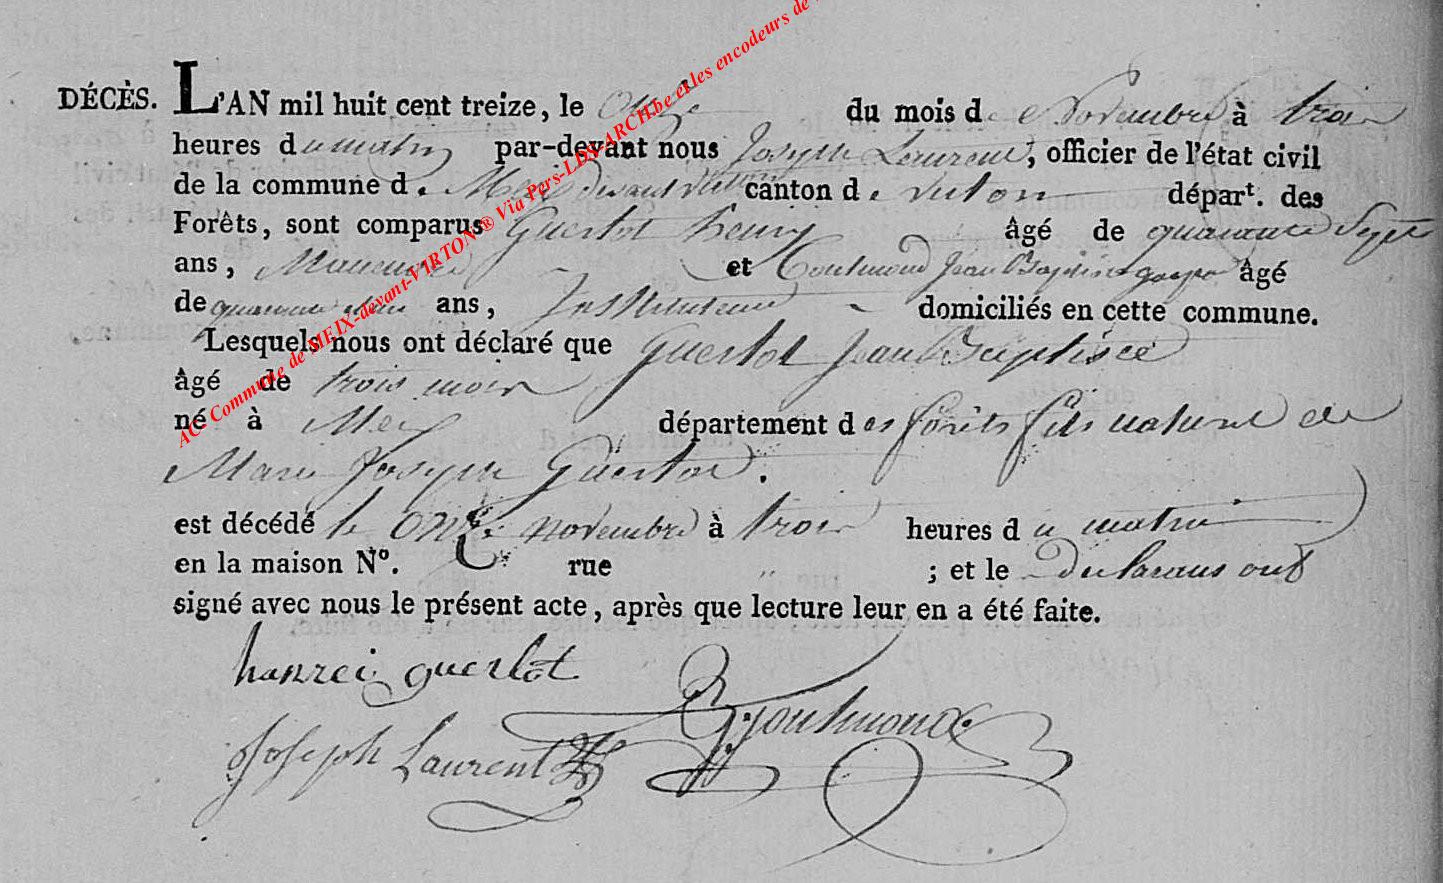 DÉCÈS. L'AN mil huit cent treize, le onze du mois de Novembre à trois
heures du matin par-devant nous Joseph Laurent, officier de l'état civil
de la commune d. Meix devant virton canton de virton départ. des
Forêts, sont comparus Guerlot henry âgé de quarante Sept
ans, Manœuvre et Jean Baptiste âgé
de quarante ans, Instituteur domiciliés en cette commune.
Lesquels nous ont déclaré que Guerlot Jean Baptiste
âgé de trois mois
né à Meix département des forêts fils naturel de
Marie Joseph Guerlot.
est décédé le Onze novembre à trois heures du matin
en la maison N°. rue " ; et le declarans ont
signé avec nous le présent acte, après que lecture leur en a été faite.
hanrei guerlot
Joseph Laurent
AC. Commune de MEIX-devant-VIRTON ® Via Pers-LDS-ARCH.be et les encodeurs de